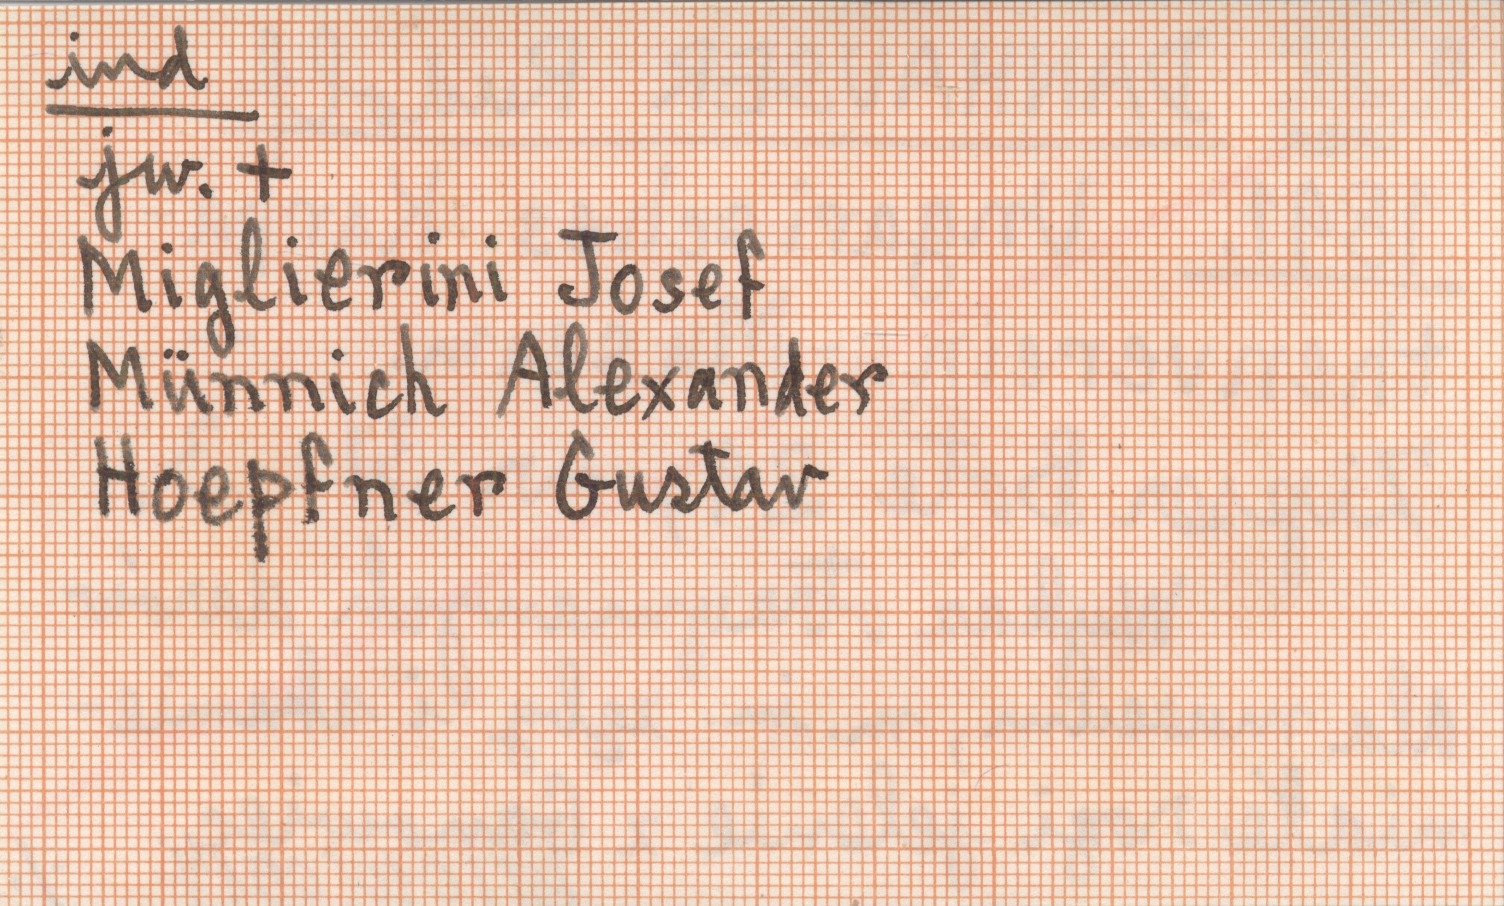 ind
jw. +
Miglierini Josef
Münnich Alexander
Hoepfner Gustav